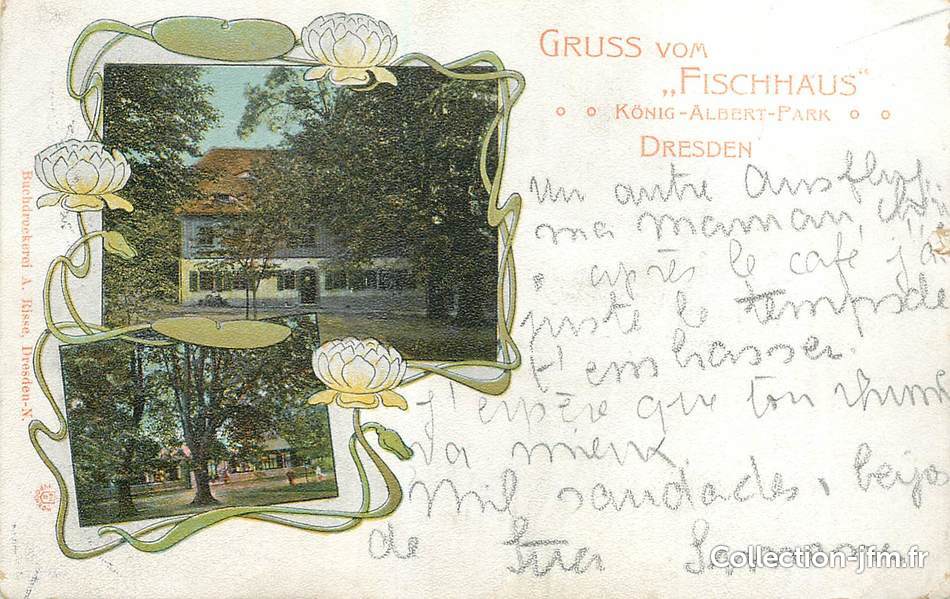 GRUSS VOM
„FISCHHAUS“
KÖNIG-ALBERT-PARK
DRESDEN
Un autre Ausflug,
ma maman,
après le café j'ai
juste le temps de
t'embrasser.
J'espère que ton rhume
va mieux.
Mil saudades, beijo
de tua
Buchdruckerei A. Risse, Dresden-N.
Collection-jfm.fr